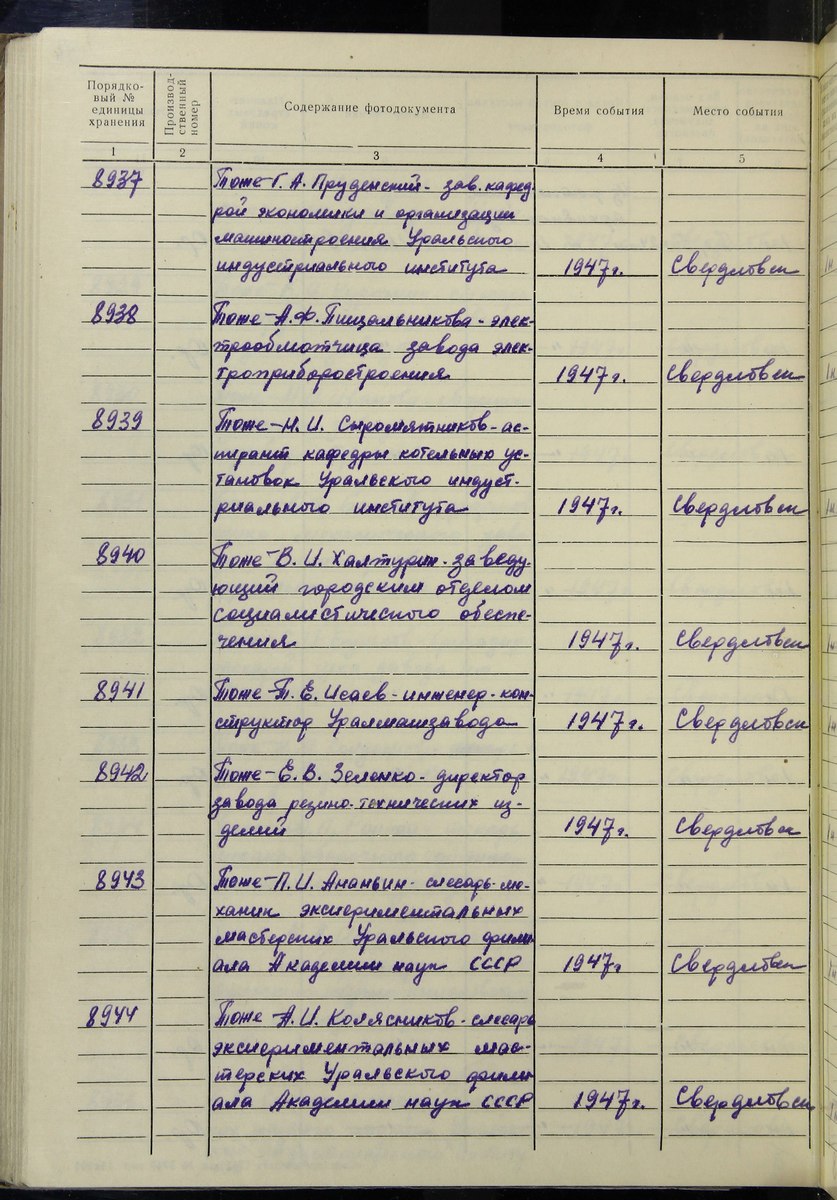 Порядко-
вый №
единицы
хранения
Производ-
ственный
номер
Содержание фотодокумента
Время события
Место события
1
2
3
4
5
8937
Тоже-Г. А. Пруденский - зав. кафед-
рой экономики и организации
машиностроения Уральского
индустриального института
1947г.
Свердловск
8938
Тоже-А.Ф. Пищальникова - элек-
трообмотчица завода элек-
троприборостроения
1947г.
Свердловск
8939
Тоже-Н. И. Сыромятников - ас-
пирант кафедры котельных ус-
тановок Уральского индуст-
риального института
1947г.
Свердловск
8940
Тоже-В. И. Халтурин - заведу-
ющий городским отделом
социалистического обеспе-
чения
1947г.
Свердловск
8941
Тоже-Т. Е. Исаев - инженер-кон-
структор Уралмашзавода
1947г.
Свердловск
8942
Тоже-Е. В. Зеленко - директор
завода резино-технических из-
делий
1947г.
Свердловск
8943
Тоже-П. И. Ананьин - слесарь-ме-
ханик экспериментальных
мастерских Уральского фили-
ала Академии наук СССР
1947г
Свердловск
8944
Тоже-А. И. Колясников - слесарь
экспериментальных мас-
терских Уральского фили-
ала Академии наук СССР
1947г.
Свердловск